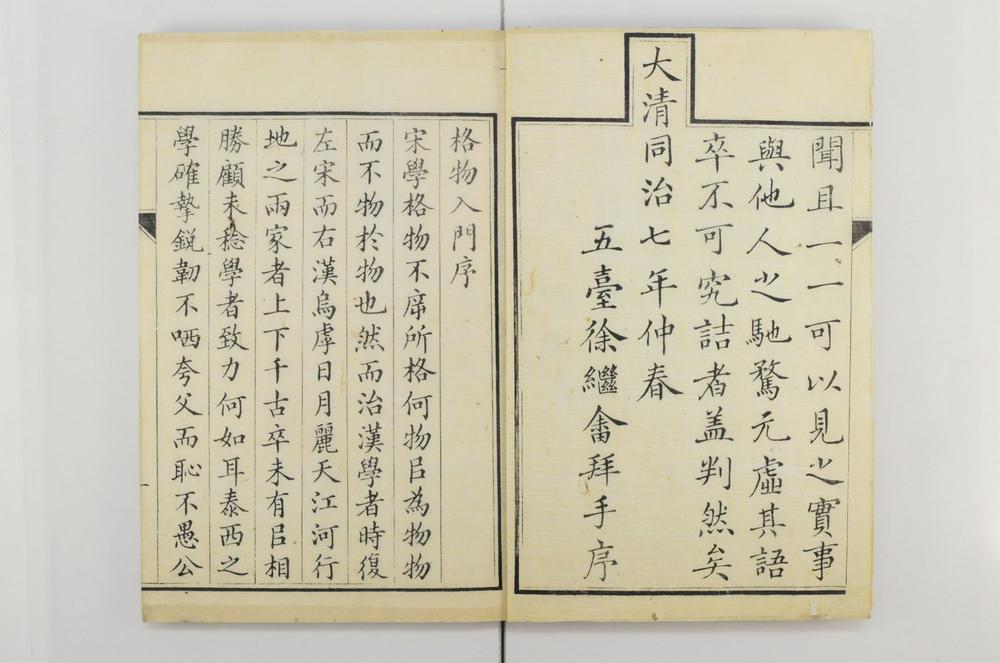 聞且一一可以見之實事
與他人之馳騖元虛其語
卒不可究詰者盖判然矣
大清同治七年仲春
五臺徐繼畬拜手序
格物入門序
宋學格物不席所格何物㠯為物物
而不物於物也然而治漢學者時復
左宋而右漢烏虖日月麗天江河行
地之兩家者上下千古卒未有㠯相
勝顧未稔學者致力何如耳泰西之
學確摯鋭韌不哂夸父而恥不愚公